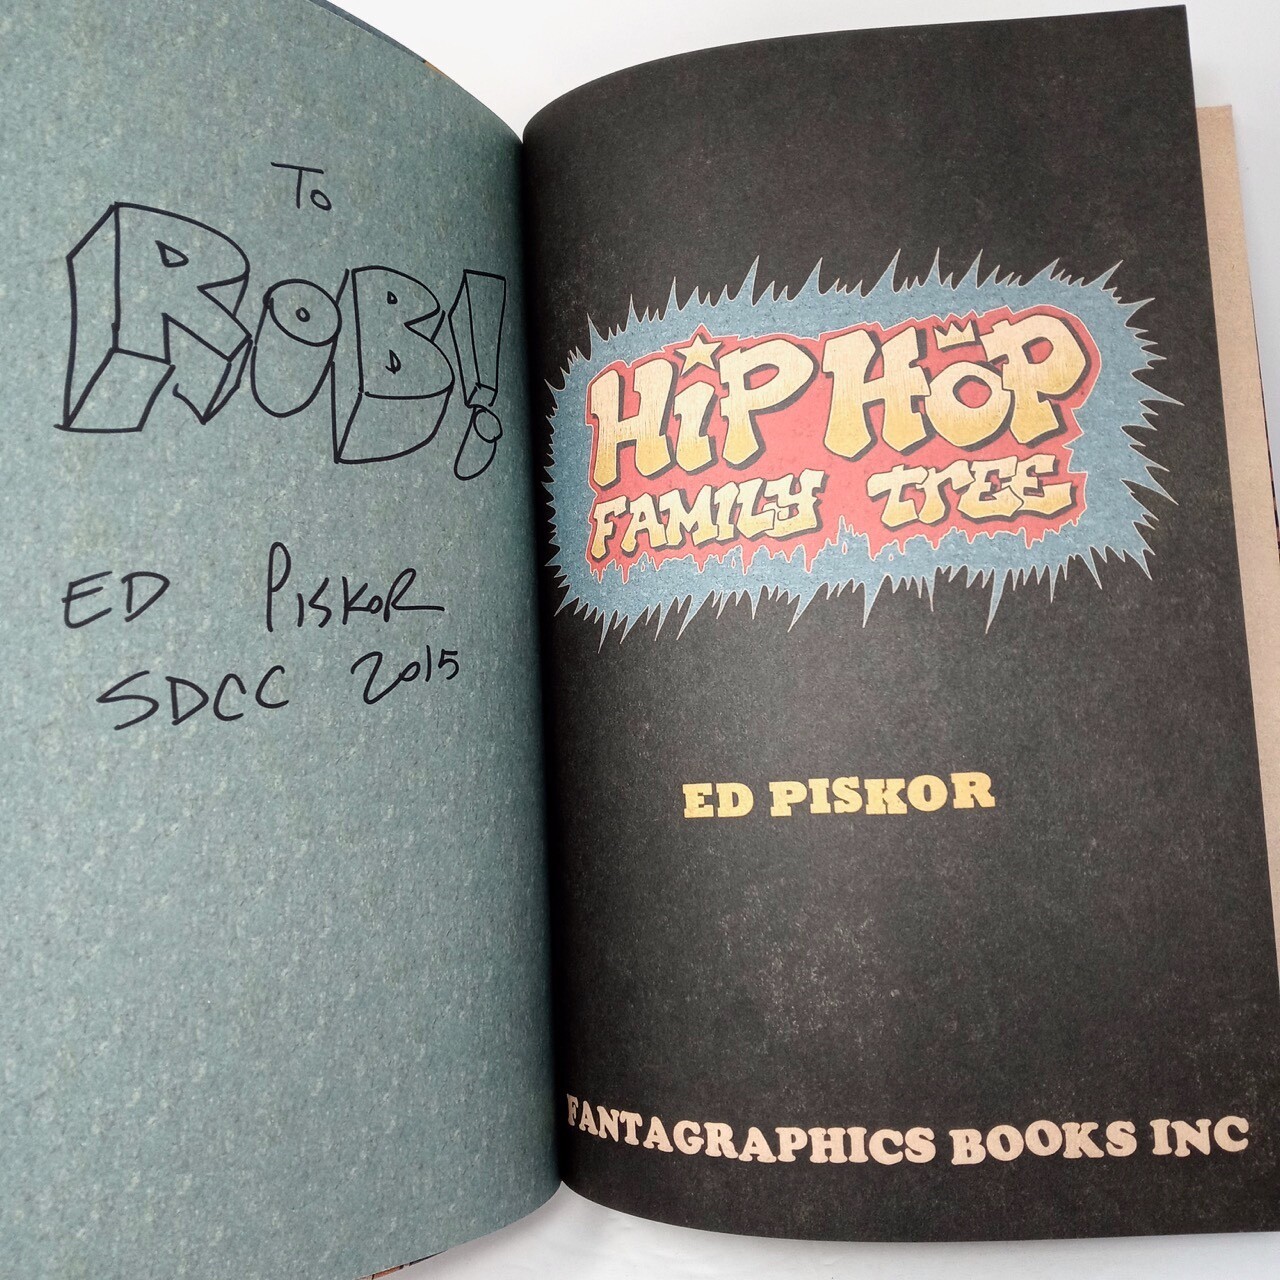 To
ROB!
ED PISKOR
SDCC 2015
HiP HOP
FAMILY TREE
ED PISKOR
FANTAGRAPHICS BOOKS INC